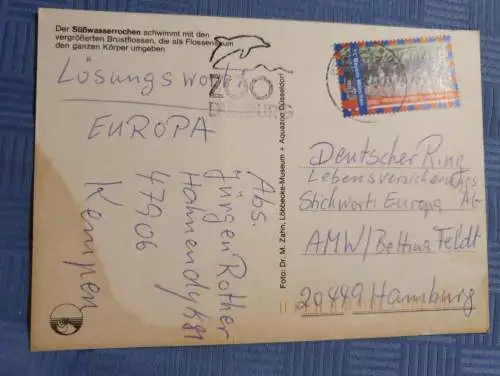 Der Süßwasserrochen schwimmt mit den
vergrößerten Brustflossen, die als Flossensaum
den ganzen Körper umgeben
Lösungswort:
EUROPA
Abs.
Jürgen Rother
47906
Kempen
ZOO
DUISBURG
Foto: Dr. M. Zahn, Löbbecke-Museum + Aquazoo Düsseldorf
Deutscher Ring
Lebensversicherungs
Stichwort: Europa AG
AMW/Bettina Feldt
20449 Hamburg